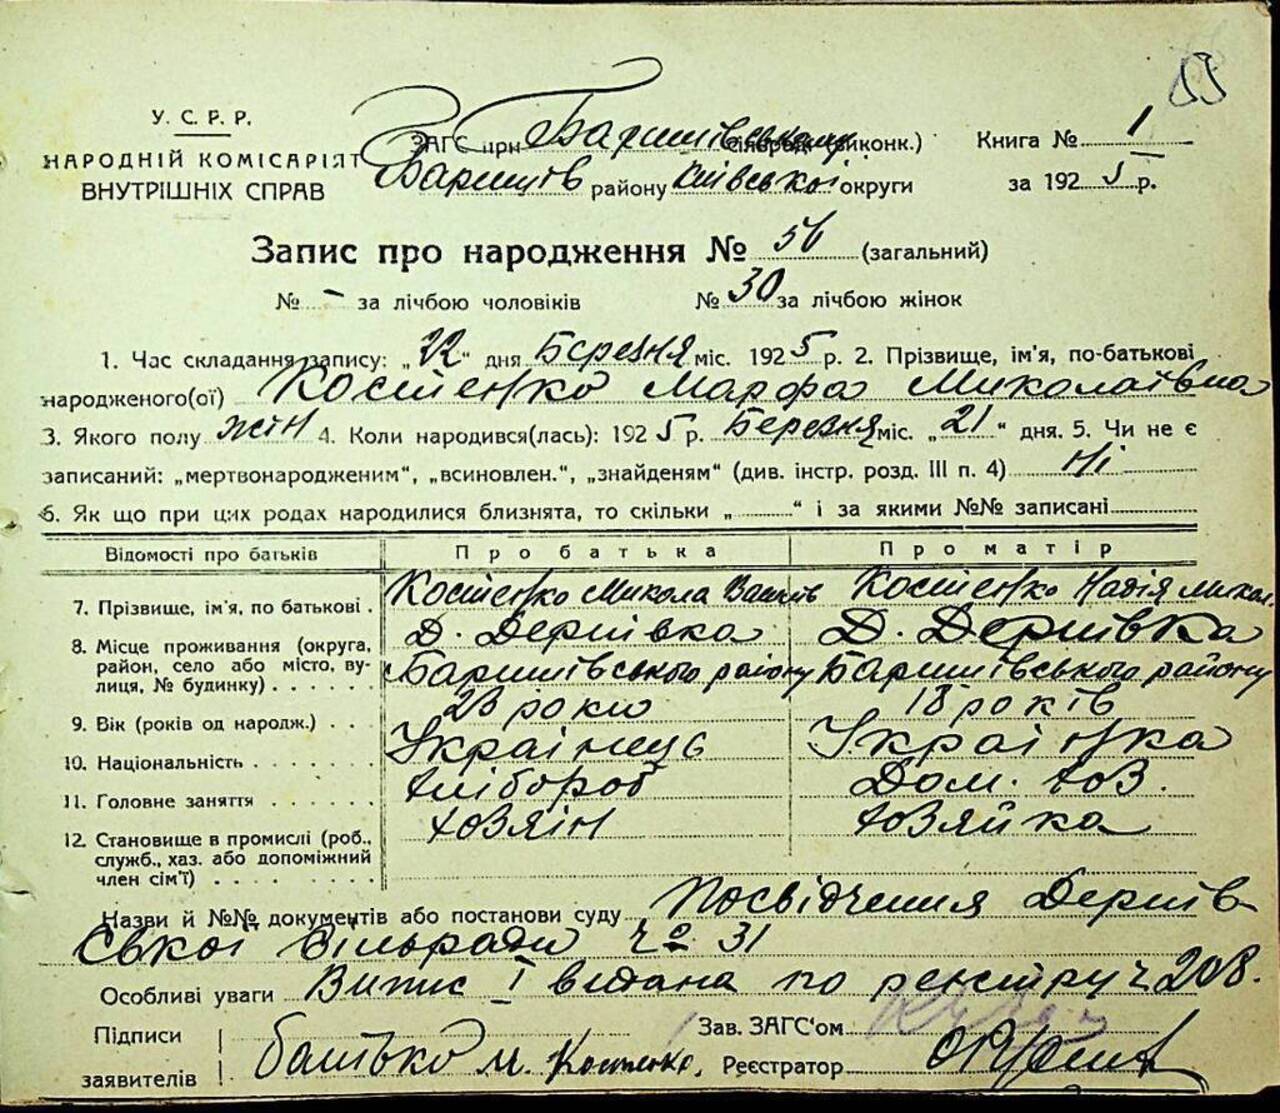 У. С. Р. Р.
НАРОДНІЙ КОМІСАРІЯТ
ВНУТРІШНІХ СПРАВ
ЗАГС при Баришівському (виконк.)
Баришів району Київської округи
Книга № 1
за 1925 р.
Запис про народження № 56 (загальний)
№ - за лічбою чоловіків № 30 за лічбою жінок
1. Час складання запису: „22“ дня Березня міс. 1925 р. 2. Прізвище, ім'я, по-батькові
народженого(ої) Костенко Марфа Миколаївна
3. Якого полу жін 4. Коли народився(лась): 1925 р. Березня міс. „21“ дня. 5. Чи не є
записаний: „мертвонародженим“, „всиновлен.“, „знайденям“ (див. інстр. розд. III п. 4) Ні
6. Як що при цих родах народилися близнята, то скільки „ “ і за якими №№ записані
Відомості про батьків Про батька Про матір
7. Прізвище, ім'я, по батькові. Костенко Микола Костенко Надія Микол.
8. Місце проживання (округа, район, село або місто, вулиця, № будинку) Д. Дернівка Д. Дернівка
Баришівського району Баришівського району
9. Вік (років од народж.) 23 роки 18 років
10. Національність Українець Українка
11. Головне заняття хлібороб Дом. хоз.
12. Становище в промислі (роб., служб., хаз. або допоміжний член сім'ї) хозяін хозяйка
Назви й №№ документів або постанови суду Посвідчення Дернів-
ської Сільради ч 31
Особливі уваги Випис I видана по реєстру ч 208.
Підписи
заявителів батько М. Костенко.
Зав. ЗАГС'ом
Реєстратор